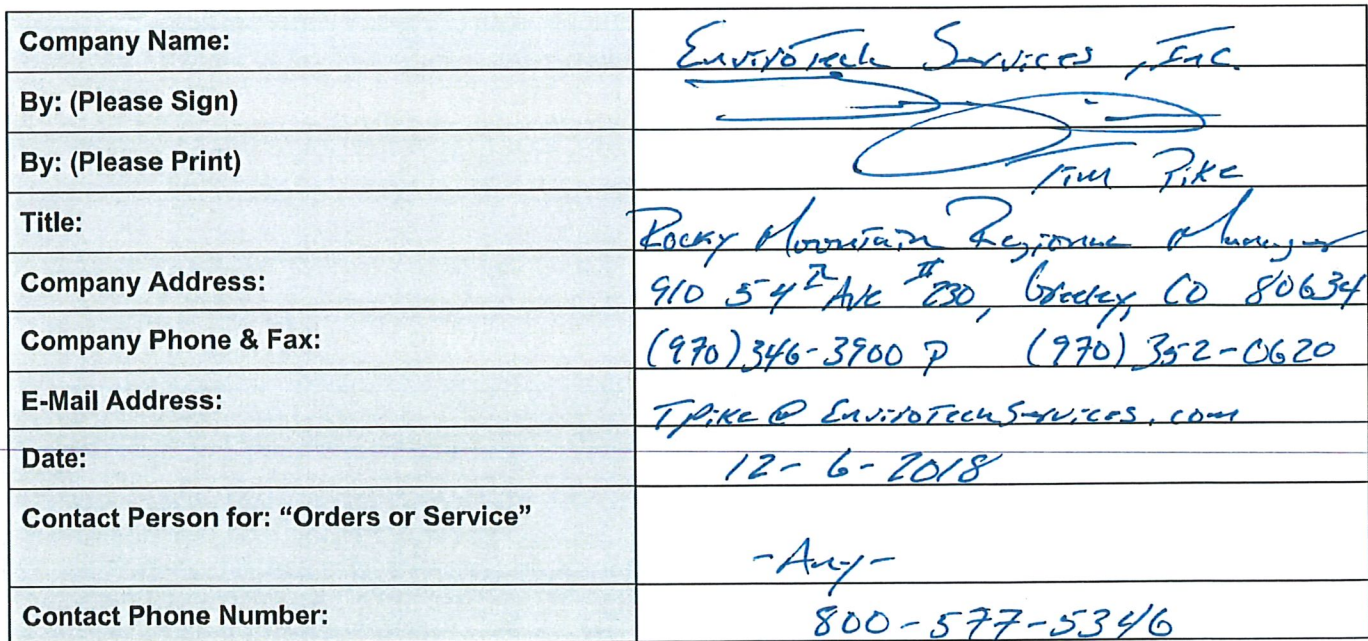 Company Name: EnviroTech Services, Inc.
By: (Please Sign)
By: (Please Print) Tim Pike
Title: Rocky Mountain Regional Manager
Company Address: 910 54th Ave #230, Greeley, CO 80634
Company Phone & Fax: (970)346-3900 P (970) 352-0620
E-Mail Address: TPike@EnviroTechServices.com
Date: 12-6-2018
Contact Person for: "Orders or Service" -Any-
Contact Phone Number: 800-577-5346